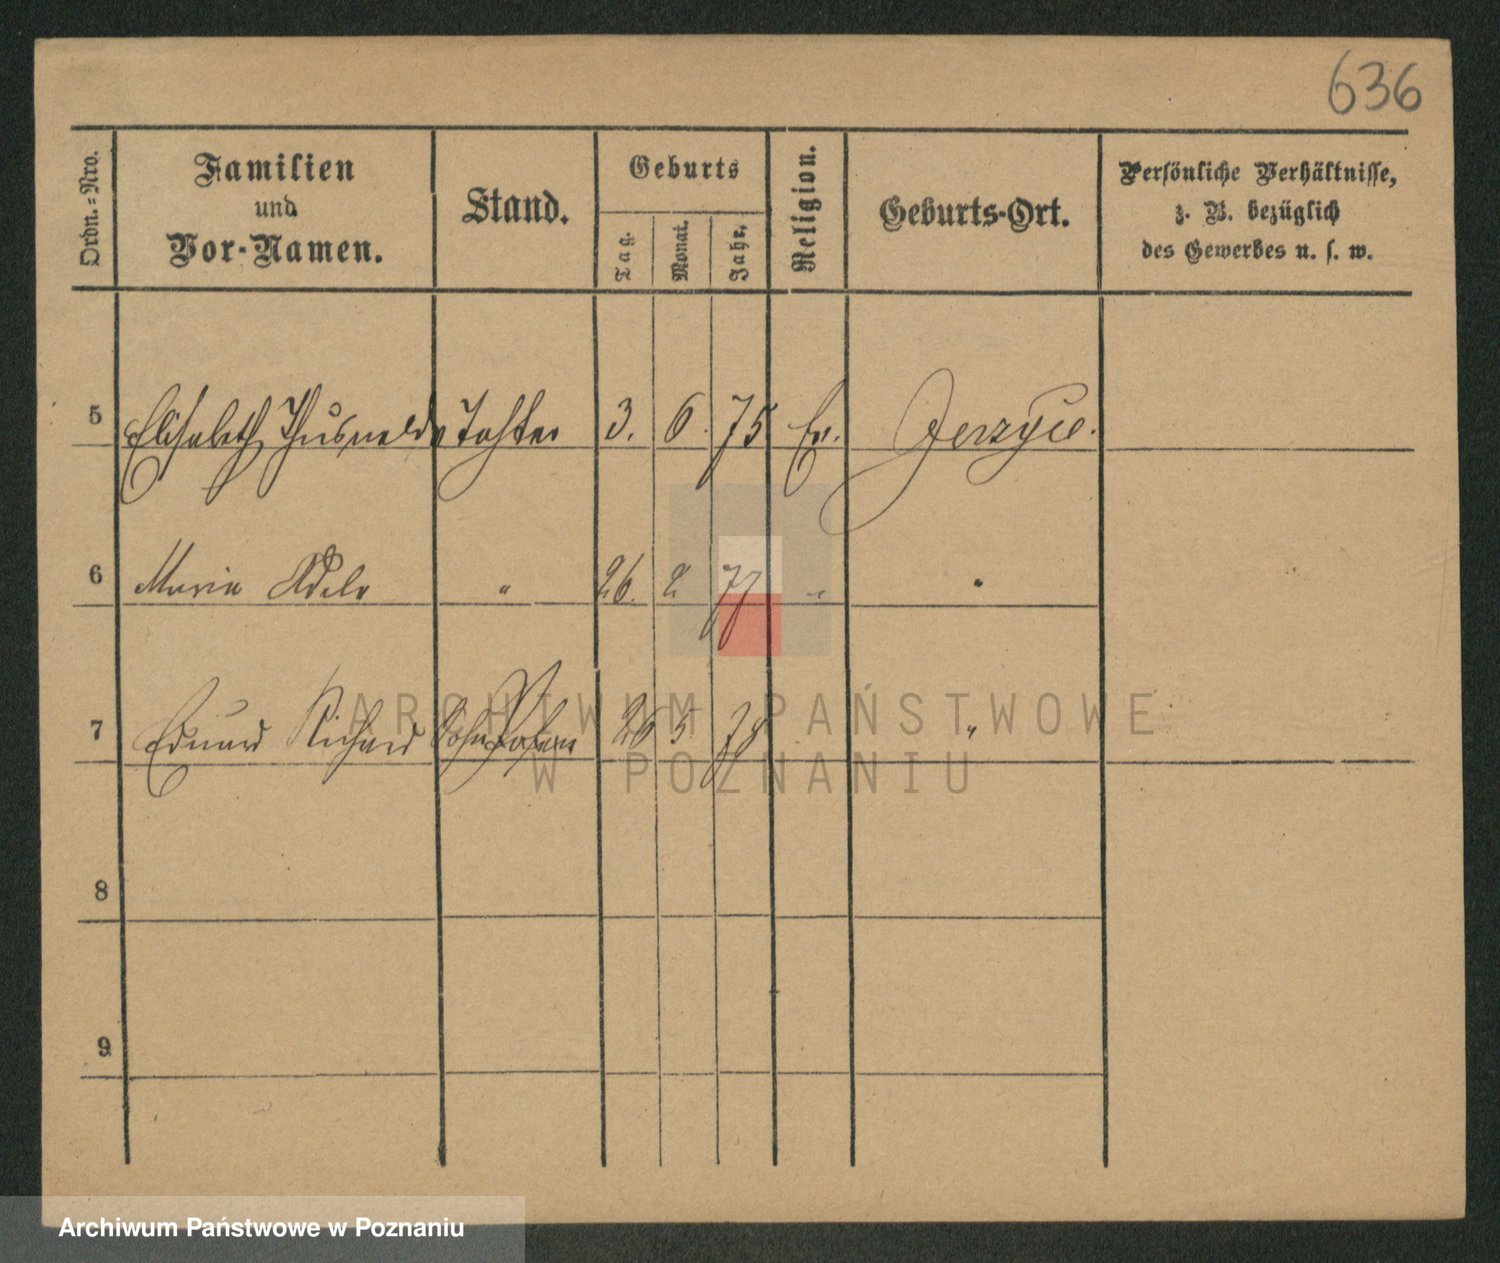 636
Ordn.=Nro.
Familien
und
Vor-Namen.
Stand.
Geburts
Tag.
Monat.
Jahr.
Religion.
Geburts-Ort.
Persönliche Verhältnisse,
z. B. bezüglich
des Gewerbes u. s. w.
5 Elisabeth Thusnelda Tochter 3. 6. 75 Ev. Jerzyce.
6 Maria Adele " 26. 2 77 " "
7 Eduard Richard Sohn 26 5 78 "
8
9
ARCHIWUM PAŃSTWOWE
W POZNANIU
Archiwum Państwowe w Poznaniu